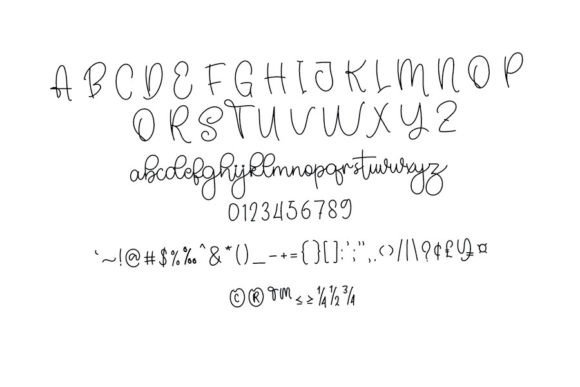 A B C D E F G H I J K L M N O P
Q R S T U V W X Y Z
abcdefghijklmnopqrstuvwxyz
0123456789
`~!@#$%‰^&*()_-+={}[]:';",.<>/|\?¢£¥¤
©®™≤≥¼½¾